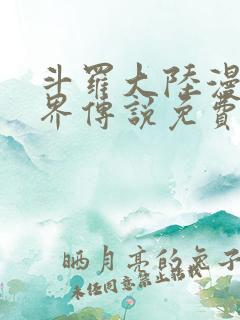 斗羅大陸漫
界傳說免費
晒月亮的兔子
未任同意禁止轉載